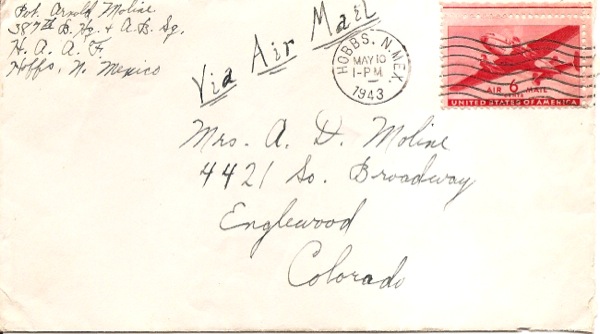 Pvt. Arnold Moline
387th B. Hq. & A.B. Sq.
H. A. A. F.
Hobbs, N. Mexico
Via Air Mail
HOBBS, N. MEX.
MAY 10
1-PM
1943
AIR 6 MAIL
CENTS
UNITED STATES OF AMERICA
Mrs. A. D. Moline
4421 So. Broadway
Englewood
Colorado